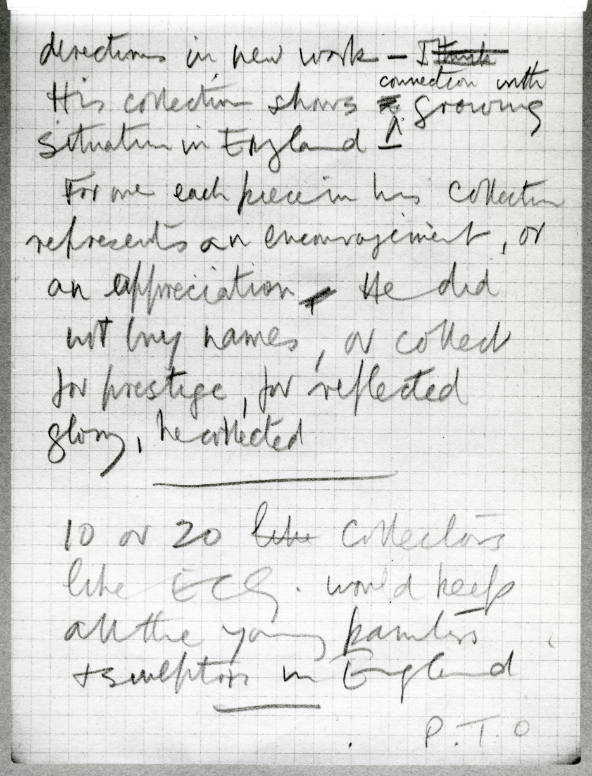 directions in new work – I think
connection with
His collection shows growing
situation in England –
For me each piece in his collection
represents an encouragement, or
an appreciation, He did
not buy names, or collect
for prestige, for reflected
glory, he collected
10 or 20 like collectors
like ECG. would keep
all the young painters
+ sculptors in England
P.T.O